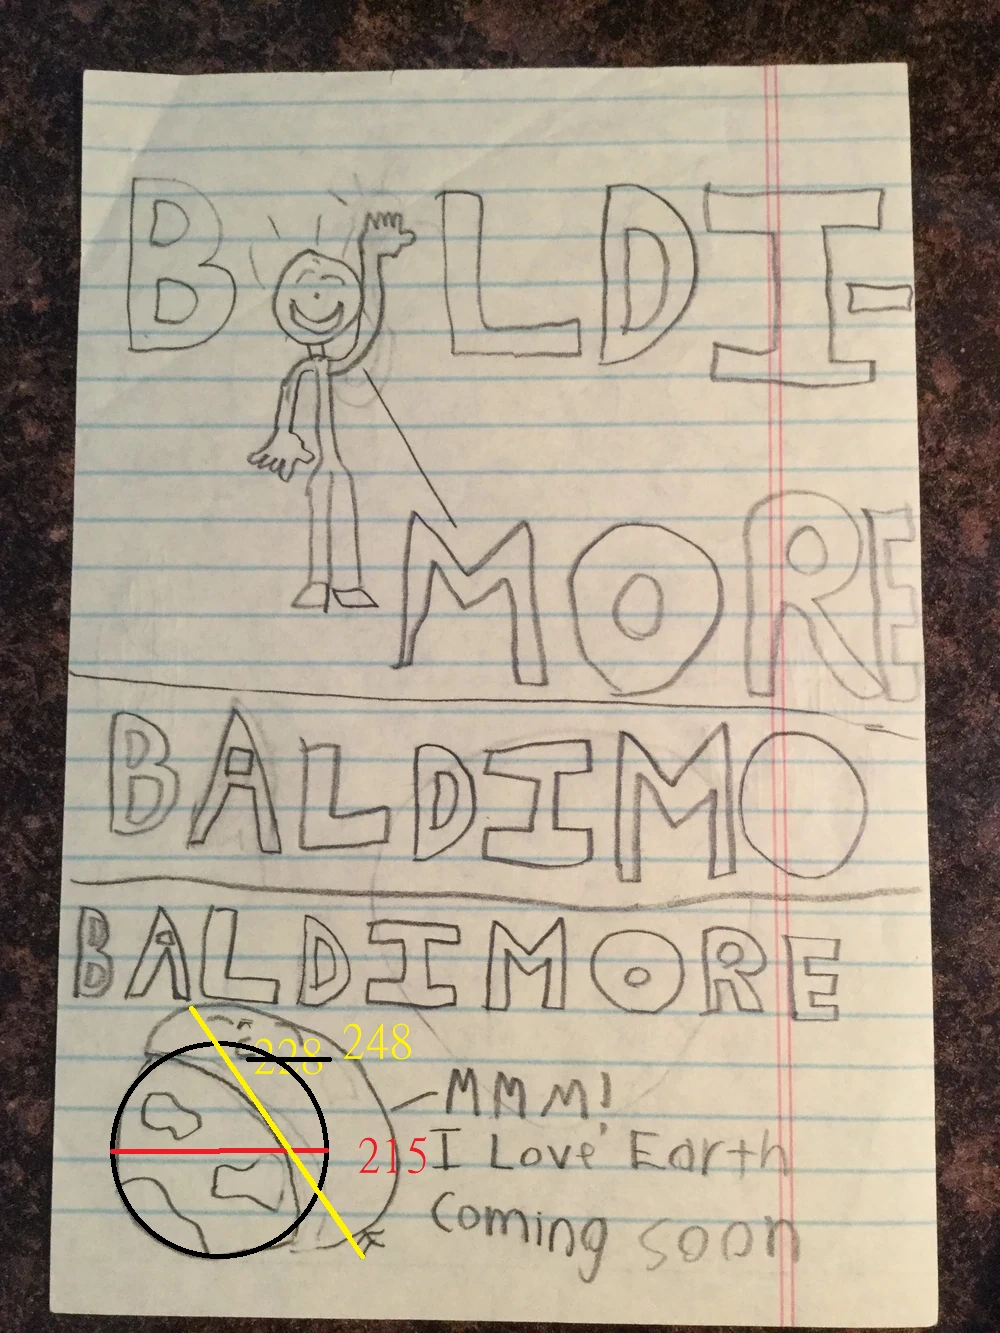 BALDI-
MORE
BALDIMO
BALDIMORE
228 248
MMM!
215
I Love Earth
Coming soon